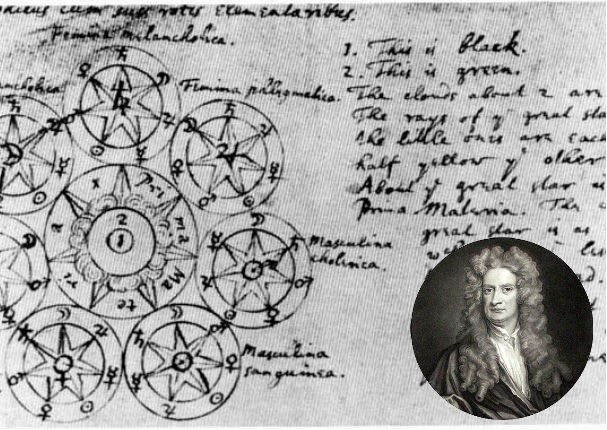 cum suis rotis Elementaribus.
Femina melancholica.
ancholica
Femina phlegmatica.
Masculina
cholerica.
Masculina
sanguinea.
2
1
x
Pri
ma
Ma
te
ri
a
1. This is black.
2. This is green.
The clouds about 2 are
The rays of yͤ great sta
the little ones are each
half yellow yͤ other
About yͤ great star is
Prima Materia. The
great star is as